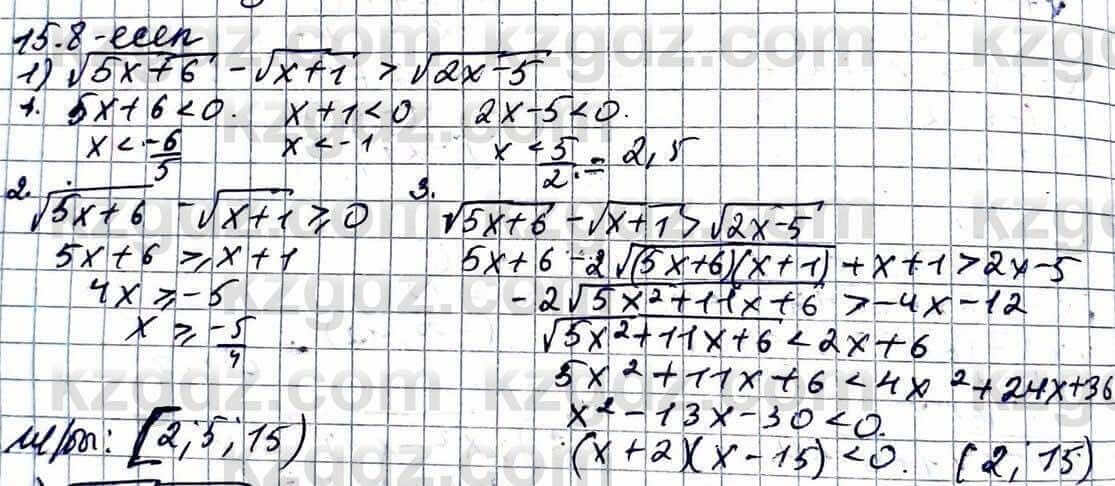 15.8-есеп
1) √5x+6 - √x+1 > √2x-5
1. 5x+6<0. x+1<0 2x-5<0.
x<-6/5 x<-1 x<5/2.=2,5
2. √5x+6 - √x+1 ≥ 0
5x+6 ≥ x+1
4x ≥ -5
x ≥ -5/4
3. √5x+6 - √x+1 > √2x-5
5x+6-2√(5x+6)(x+1) + x+1 > 2x-5
-2√5x²+11x+6 > -4x-12
√5x²+11x+6 < 2x+6
5x²+11x+6 < 4x²+24x+36
x²-13x-30<0.
(x+2)(x-15)<0. (2; 15)
[2,5; 15)
kzgdz.com